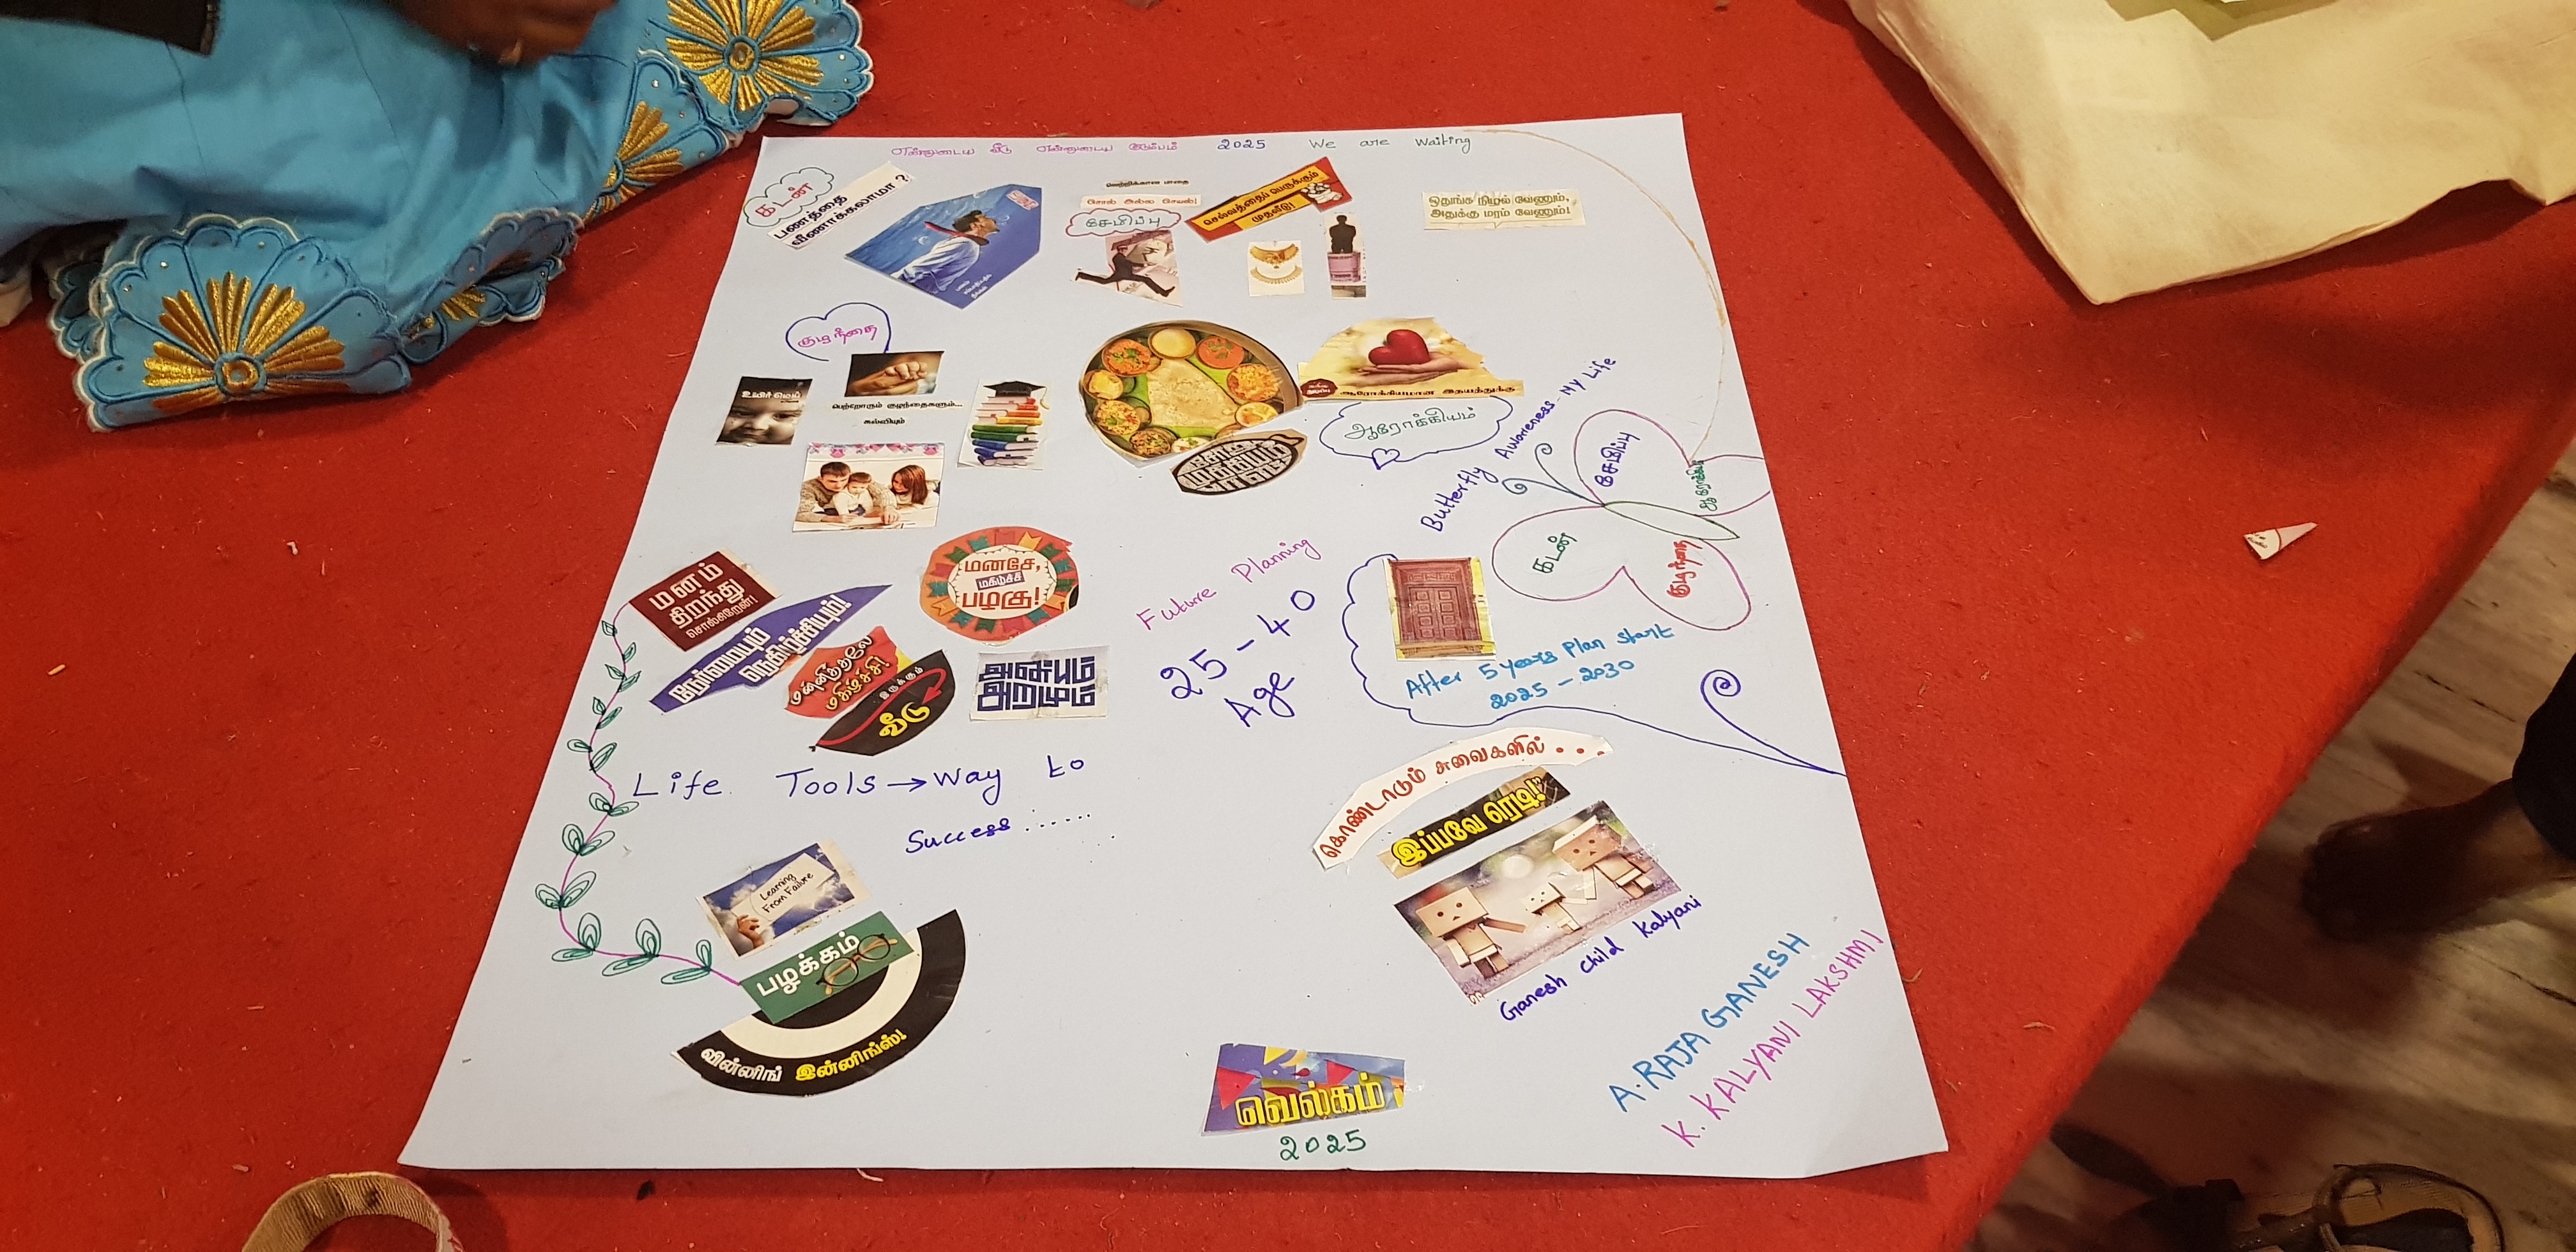 என்னுடைய வீடு என்னுடைய குடும்பம் 2025 We are waiting
கடன்
பணத்தை
வீணாக்கலாமா ?
வெற்றிக்கான பாதை
சொல் அல்ல செயல்!
சேமிப்பு
செல்வத்தைப் பெருக்கும்
முதலீடு!
ஒதுங்க நிழல் வேணும்,
அதுக்கு மரம் வேணும்!
குழந்தை
உயிர் மெய்
பெற்றோரும் குழந்தைகளும்...
கல்வியும்
ஆரோக்கியமான இதயத்துக்கு
ஆரோக்கியம்
Butterfly Awareness - My Life
சேமிப்பு
ஆரோக்கியம்
கடன்
குழந்தை
மனம்
திறந்து
சொல்கிறேன்!
நேர்மையும்
நெகிழ்ச்சியும்!
மனசே,
மகிழ்ச்சி
பழகு!
மன்னித்தலே
மகிழ்ச்சி!
இருக்கும்
வீடு
அன்பும்
அறமும்
Future Planning
25 - 40
Age
After 5 years Plan start
2025 - 2030
Life Tools → Way to
Success ......
கொண்டாடும் சுவைகளில் . . .
இப்பவே ரெடி!
Ganesh child Kalyani
Learning
From Failure
பழக்கம்
வின்னிங் இன்னிங்ஸ்!
வெல்கம்
2025
A. RAJA GANESH
K. KALYANI LAKSHMI